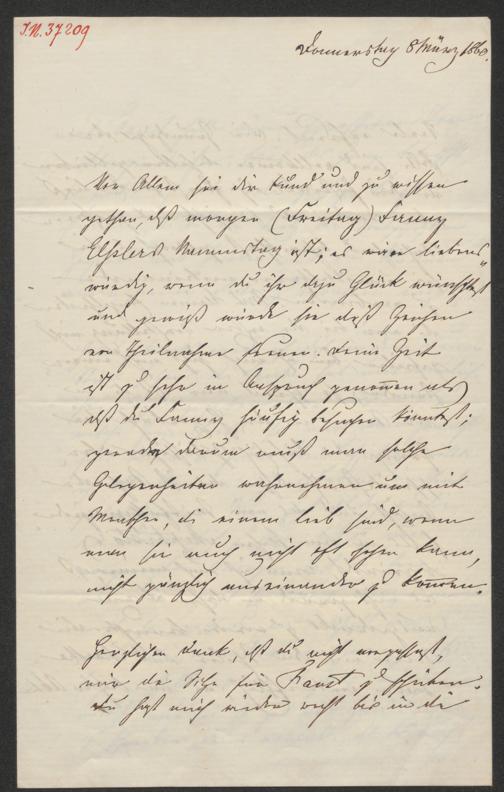 I.N. 37209
Donnerstag 8 März 1860.
Vor Allem sei dir kund und zu wissen
gethan, dß morgen (Freitag) Fanny
Elßlers Namenstag ist; es wäre liebens„
würdig, wenn du ihr dazu Glück wünschtest
und gewiß würde sie dieß Zeichen
von Theilnahme freuen. Deine Zeit
ist zu sehr in Anspruch genommen als
dß du Fanny häufig besuchen könntest;
gerade darum muß man solche
Gelegenheiten wahrnehmen um mit
Menschen, die einem lieb sind, wenn
man sie auch nicht oft sehen kann,
nicht gänzlich auseinander zu kommen.
Herzlichen Dank, dß du nicht vergaßest,
mir die Sitze für Faust zu schicken.
Du hast mich wieder recht bis in die